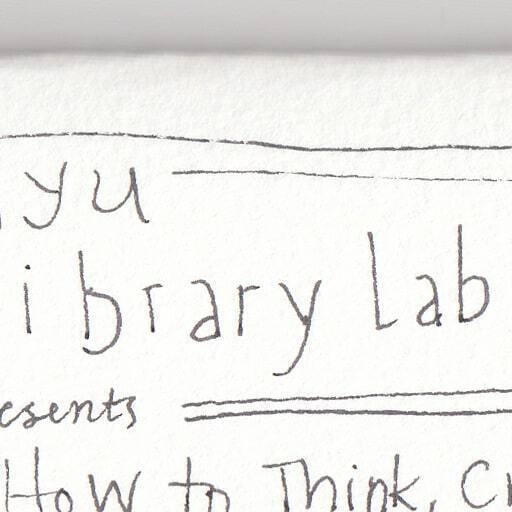 yu
ibrary Lab
esents
How to Think, Cr